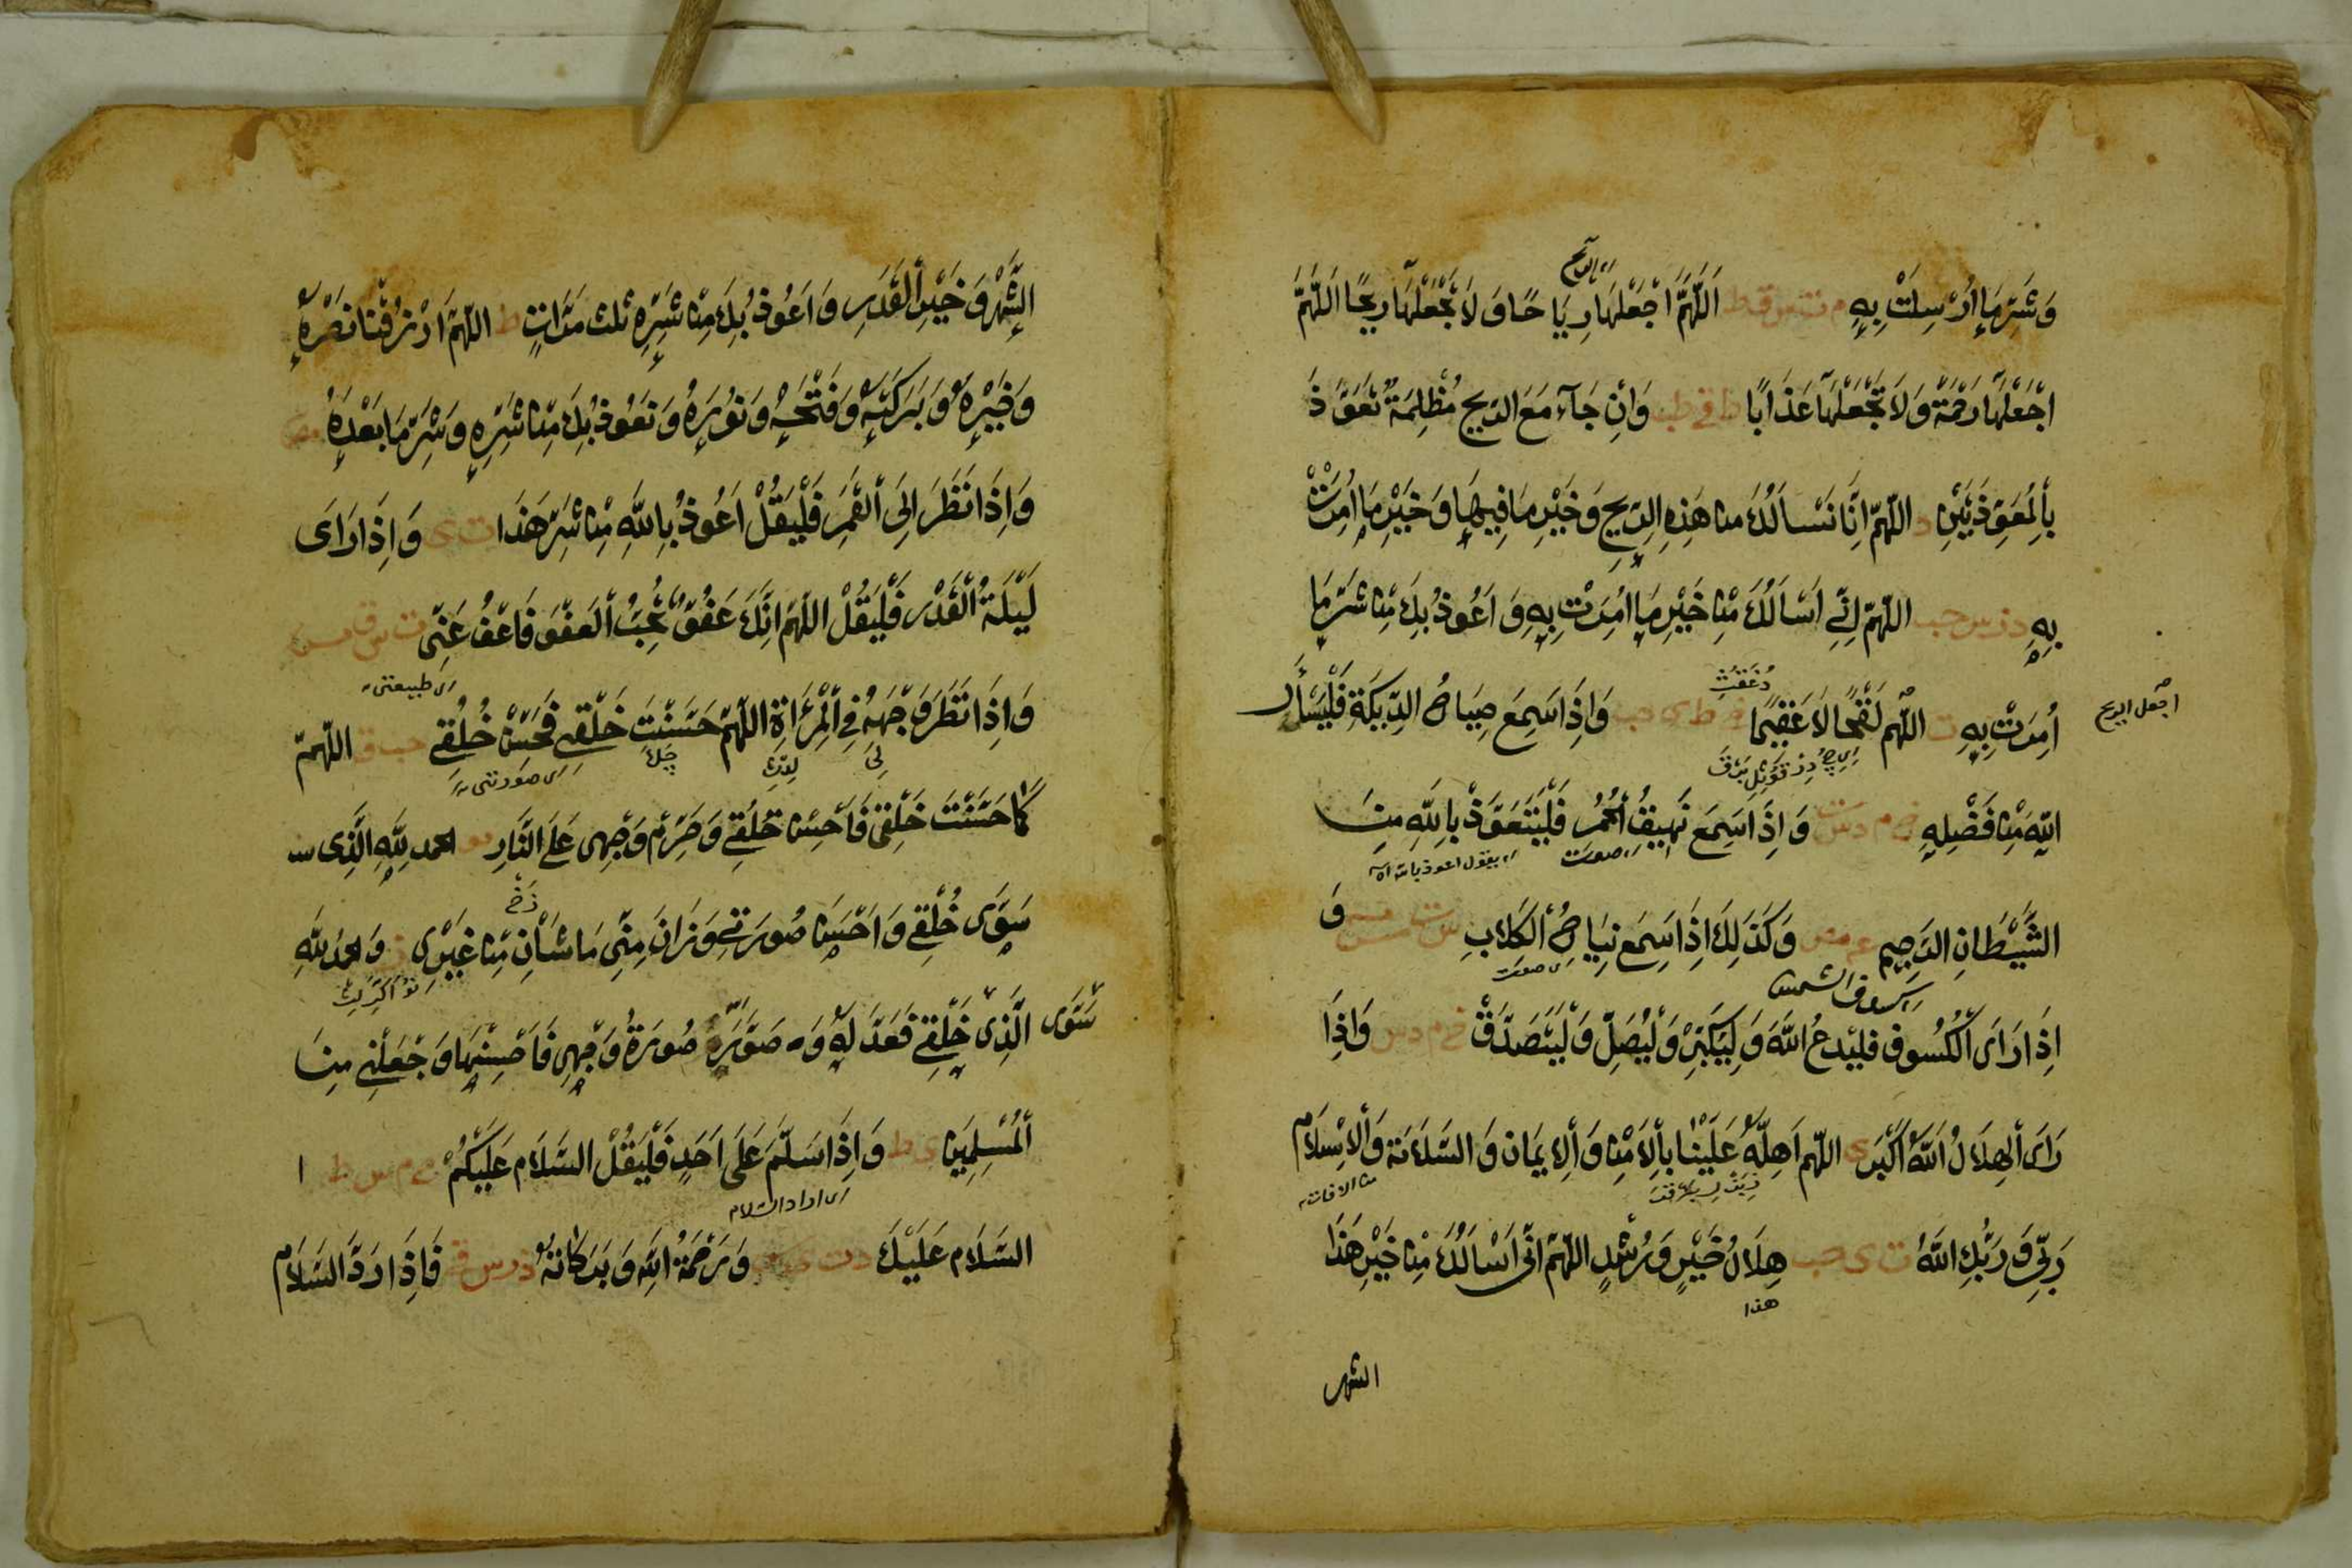 وَشَرِّمَا اُرْسِلَتْ بِهٖ م ت س ط اَللّٰهُمَّ اجْعَلْهَا رِيَاحًا وَلَا تَجْعَلْهَا رِيحًا اللّٰهُمَّ
اجْعَلْهَا رَحْمَةً وَلَا تَجْعَلْهَا عَذَابًا وَاِنْ جَآءَ مَعَ الرِّيحِ مُظْلِمَةٌ تَعَوَّذَ
بِالْمُعَوِّذَتَيْنِ د اللّٰهُمَّ اِنَّا نَسْاَلُكَ مِنْ هٰذِهِ الرِّيحِ وَخَيْرِ مَا فِيهَا وَخَيْرِ مَا اُمِرَتْ
بِهٖ اللّٰهُمَّ اِنِّي اَسْاَلُكَ مِنْ خَيْرِ مَا اُمِرَتْ بِهٖ وَاَعُوذُ بِكَ مِنْ شَرِّ مَا
اجعل الريح
اُمِرَتْ بِهٖ ت اللّٰهُمَّ لَقْحًا لَا عَقِيمًا وَاِذَا سَمِعَ صِيَاحَ الدِّيَكَةِ فَلْيَسْأَلِ
اللّٰهَ مِنْ فَضْلِهٖ خ م د ت س وَاِذَا سَمِعَ نَهِيقَ الْحُمُرِ فَلْيَتَعَوَّذْ بِاللّٰهِ مِنَ
اى صوت
اى يقول اعوذ بالله
الشَّيْطَانِ الرَّجِيمِ وَكَذٰلِكَ اِذَا سَمِعَ نِبَاحَ الْكِلَابِ وَ
اى صوت
اى كسوف الشمس
اِذَا رَاَى الْكُسُوفَ فليَدعُ اللّٰهَ وَلْيُكَبِّرْ وَلْيُصَلِّ وَلْيَتَصَدَّقْ خ م د س وَاِذَا
رَاَى الْهِلَالَ اَللّٰهُ اَكْبَرُ ى اللّٰهُمَّ اَهِلَّهٗ عَلَيْنَا بِالْاَمْنِ وَالْاِيمَانِ وَالسَّلَامَة وَالْاِسْلَامِ
من الافات
رَبِّي وَرَبُّكِ اللّٰهُ ت ى حب هِلَالُ خَيْرٍ وَرُشْدٍ اللّٰهُمَّ اِنِّي اَسْاَلُكَ مِنْ خَيْرِ هٰذَا
هذا
الشهر
الشَّهْرِ وَخَيْرِ الْقَدَرِ وَاَعُوذُ بِكَ مِنْ شَرِّهٖ ثلث مَرَّاتٍ ط اللّٰهُمَّ ارْزُقْنَا نَصْرَهٗ
وَخَيْرَهٗ وَبَرَكَتَهٗ وَفَتْحَهٗ وَنُورَهٗ وَنَعُوذُ بِكَ مِنْ شَرِّهٖ وَشَرِّ مَا بَعْدَهٗ مص
وَاِذَا نَظَرَ اِلَى الْقَمَرِ فَلْيَقُلْ اَعُوذُ بِاللّٰهِ مِنْ شَرِّ هٰذَا ت ى وَاِذَا رَاَى
لَيْلَةَ الْقَدْرِ فَلْيَقُلْ اللّٰهُمَّ اِنَّكَ عَفُوٌّ تُحِبُّ الْعَفْوَ فَاعْفُ عَنِّي ت س ق مس
اى طبيعتى
وَاِذَا نَظَرَ وَجْهَهُ فِي الْمِرْاٰةِ اللّٰهُمَّ حَسَّنْتَ خَلْقِي فَحَسِّنْ خُلُقِي حب اللّٰهُمَّ
اى صورتى
كَمَا حَسَّنْتَ خَلْقِي فَاَحْسِنْ خُلُقِي وَحَرِّمْ وَجْهِى عَلَى النَّارِ الحمد لِلّٰهِ الَّذِى
سَوَّى خُلْقِي وَاَحْسَنَ صُورَتِي وَزَانَ مِنِّي مَا شَانَ مِنْ غَيْرِى وَالحمدُ لِلّٰهِ
الَّذِى سَوَّى خَلْقِي فَعَدَّلَهٗ وَصَوَّرَ صُورَةَ وَجْهِى فَاَحْسَنَهَا وَجَعَلَنِي مِنَ
الْمُسْلِمِينَ ى ط وَاِذَا سَلَّمَ عَلَى اَحَدٍ فَلْيَقُلْ السَّلَام عَلَيْكُمْ خ م س ط
اى اراد السلام
السَّلَام عَلَيْكَ د ت وَرَحْمَةُ اللّٰهِ وَبَرَكَاتُهٗ د ت س فَاِذَا رَدَّ السَّلَامَ